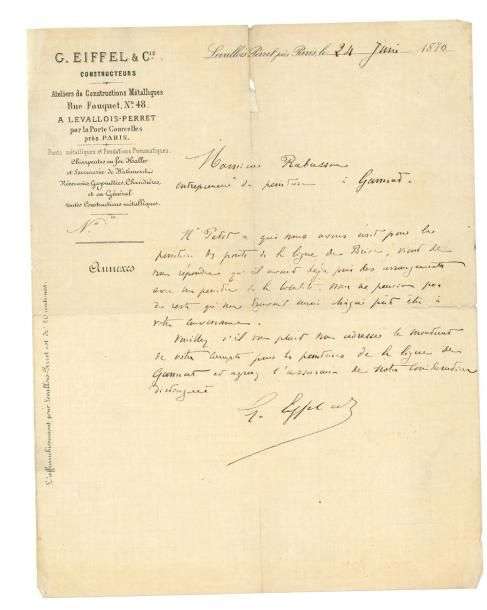 G. EIFFEL & Cie
CONSTRUCTEURS
Ateliers de Constructions Métalliques
Rue Fouquet, No. 48.
A LEVALLOIS-PERRET
par la Porte Courcelles
près PARIS.
Ponts métalliques et Fondations Pneumatiques.
Charpentes en fer, Halles
et Serrurerie de Bâtiments,
Réservoirs, Gazomètres, Chaudières,
et en Général
toutes Constructions métalliques.
No
Annexes
L'affranchissement pour Levallois-Perret est de 15 centimes.
Levallois-Perret près Paris, le 24 Juin 1870
Monsieur Rabusson
entrepreneur de peinture à Gannat.
Mr Petot à qui nous avons écrit pour les
peintures des ponts de la ligne de vient de
nous répondre qu'il avait déjà pris des arrangements
avec un peintre de la localité. Nous ne pensions pas
du reste qu'un travail aussi éloigné pût être à
votre convenance.
Veuillez s'il vous plait nous adresser le montant
de votre compte pour les peintures de la ligne de
Gannat et agréez l'assurance de notre considération
distinguée
G. Eiffel et Cie